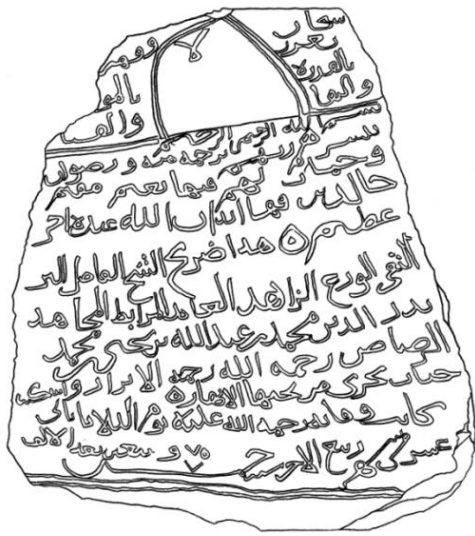 سبحان من
تعزز
بالقدرة
والبقا
وقهر
بالمو
والف
بسم الله الرحمن الرحيم
يبشرهم ربهم برحمة منه ورضوان
وجنت لهم فيها نعيم مقيم
خالدين فيها ابدا ان الله عنده اجر
عظيم ه هذا ضريح الشيخ العامل البر
التقي الورع الزاهد العابد المرابط المجاهد
بدر الدين محمد بن عبدالله بن يحيى بن محمد
الرصاص رحمه الله رحمة الابرار واسكنه
جنات تجري من تحتها الانهار
كانت وفاته رحمة الله عليه يوم الثلاثا ثاني
عشر شهر ربيع الاخر